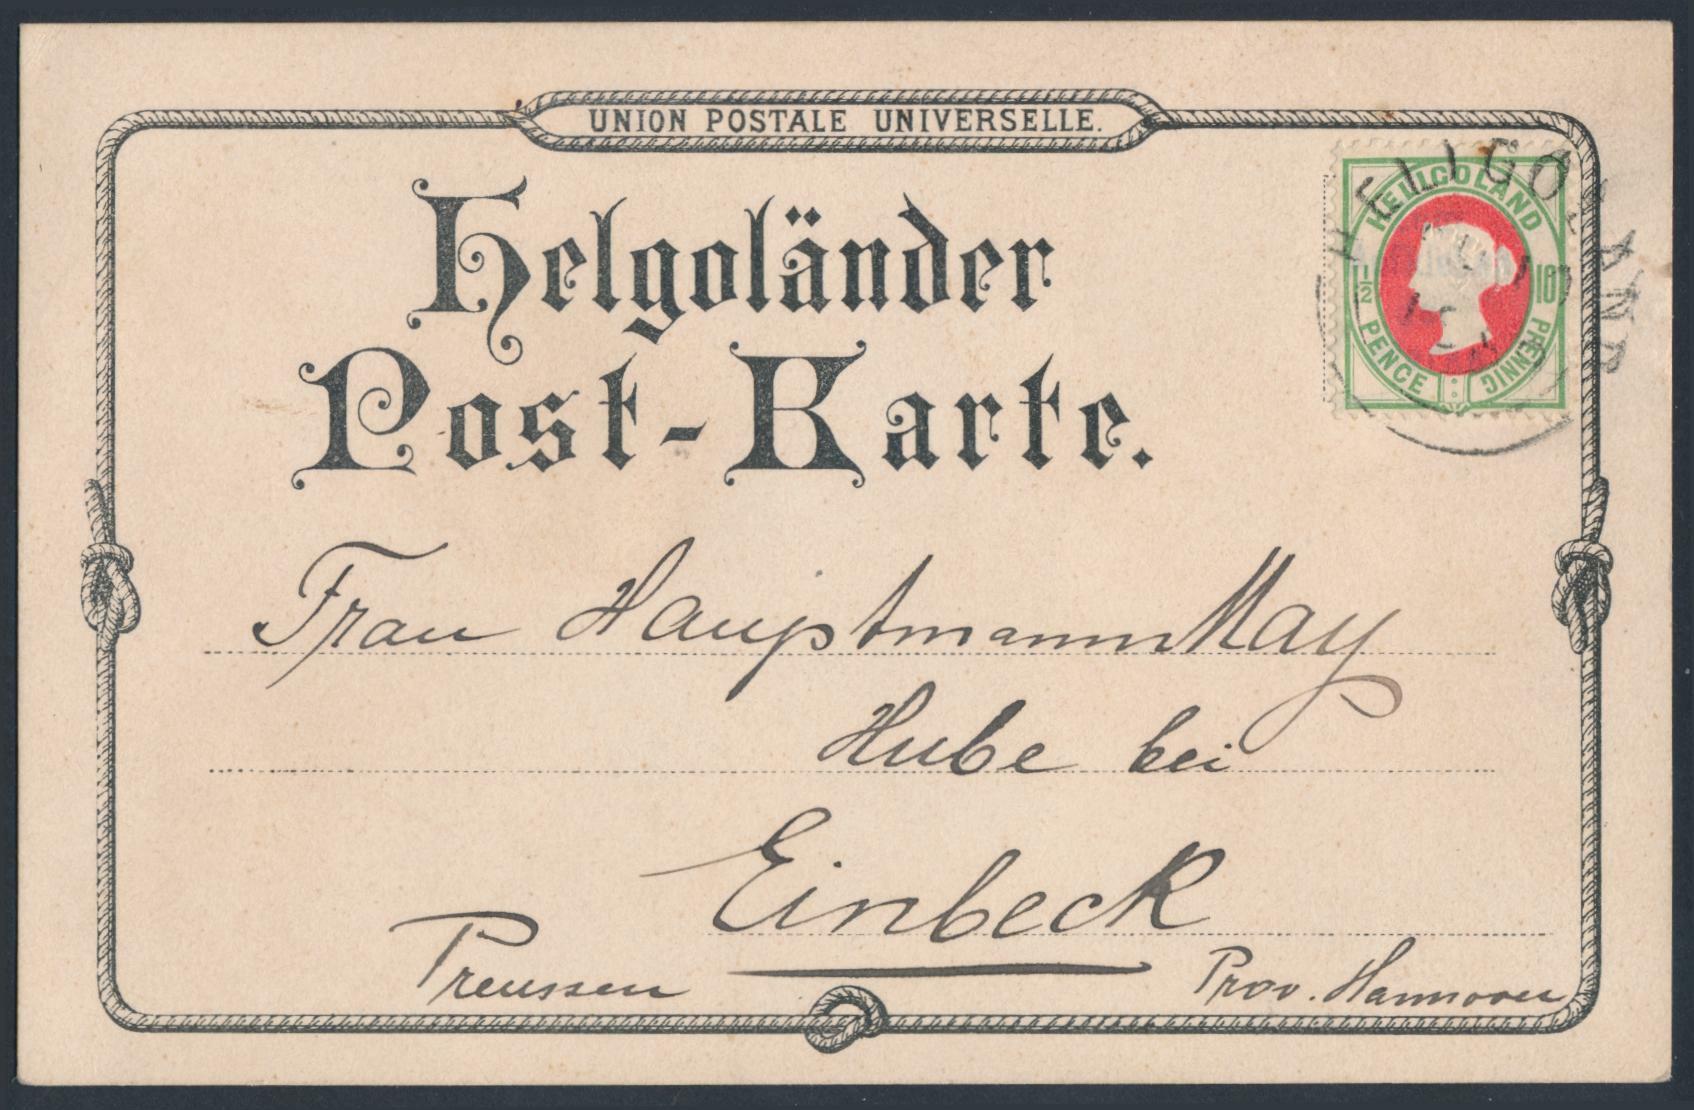 UNION POSTALE UNIVERSELLE.
HELIGOLAND
HELIGOLAND
1½ PENCE
10 PFENNIG
Helgoländer
Post-Karte.
Frau Hauptmann May
Hube bei
Einbeck
Preussen
Prov. Hannover